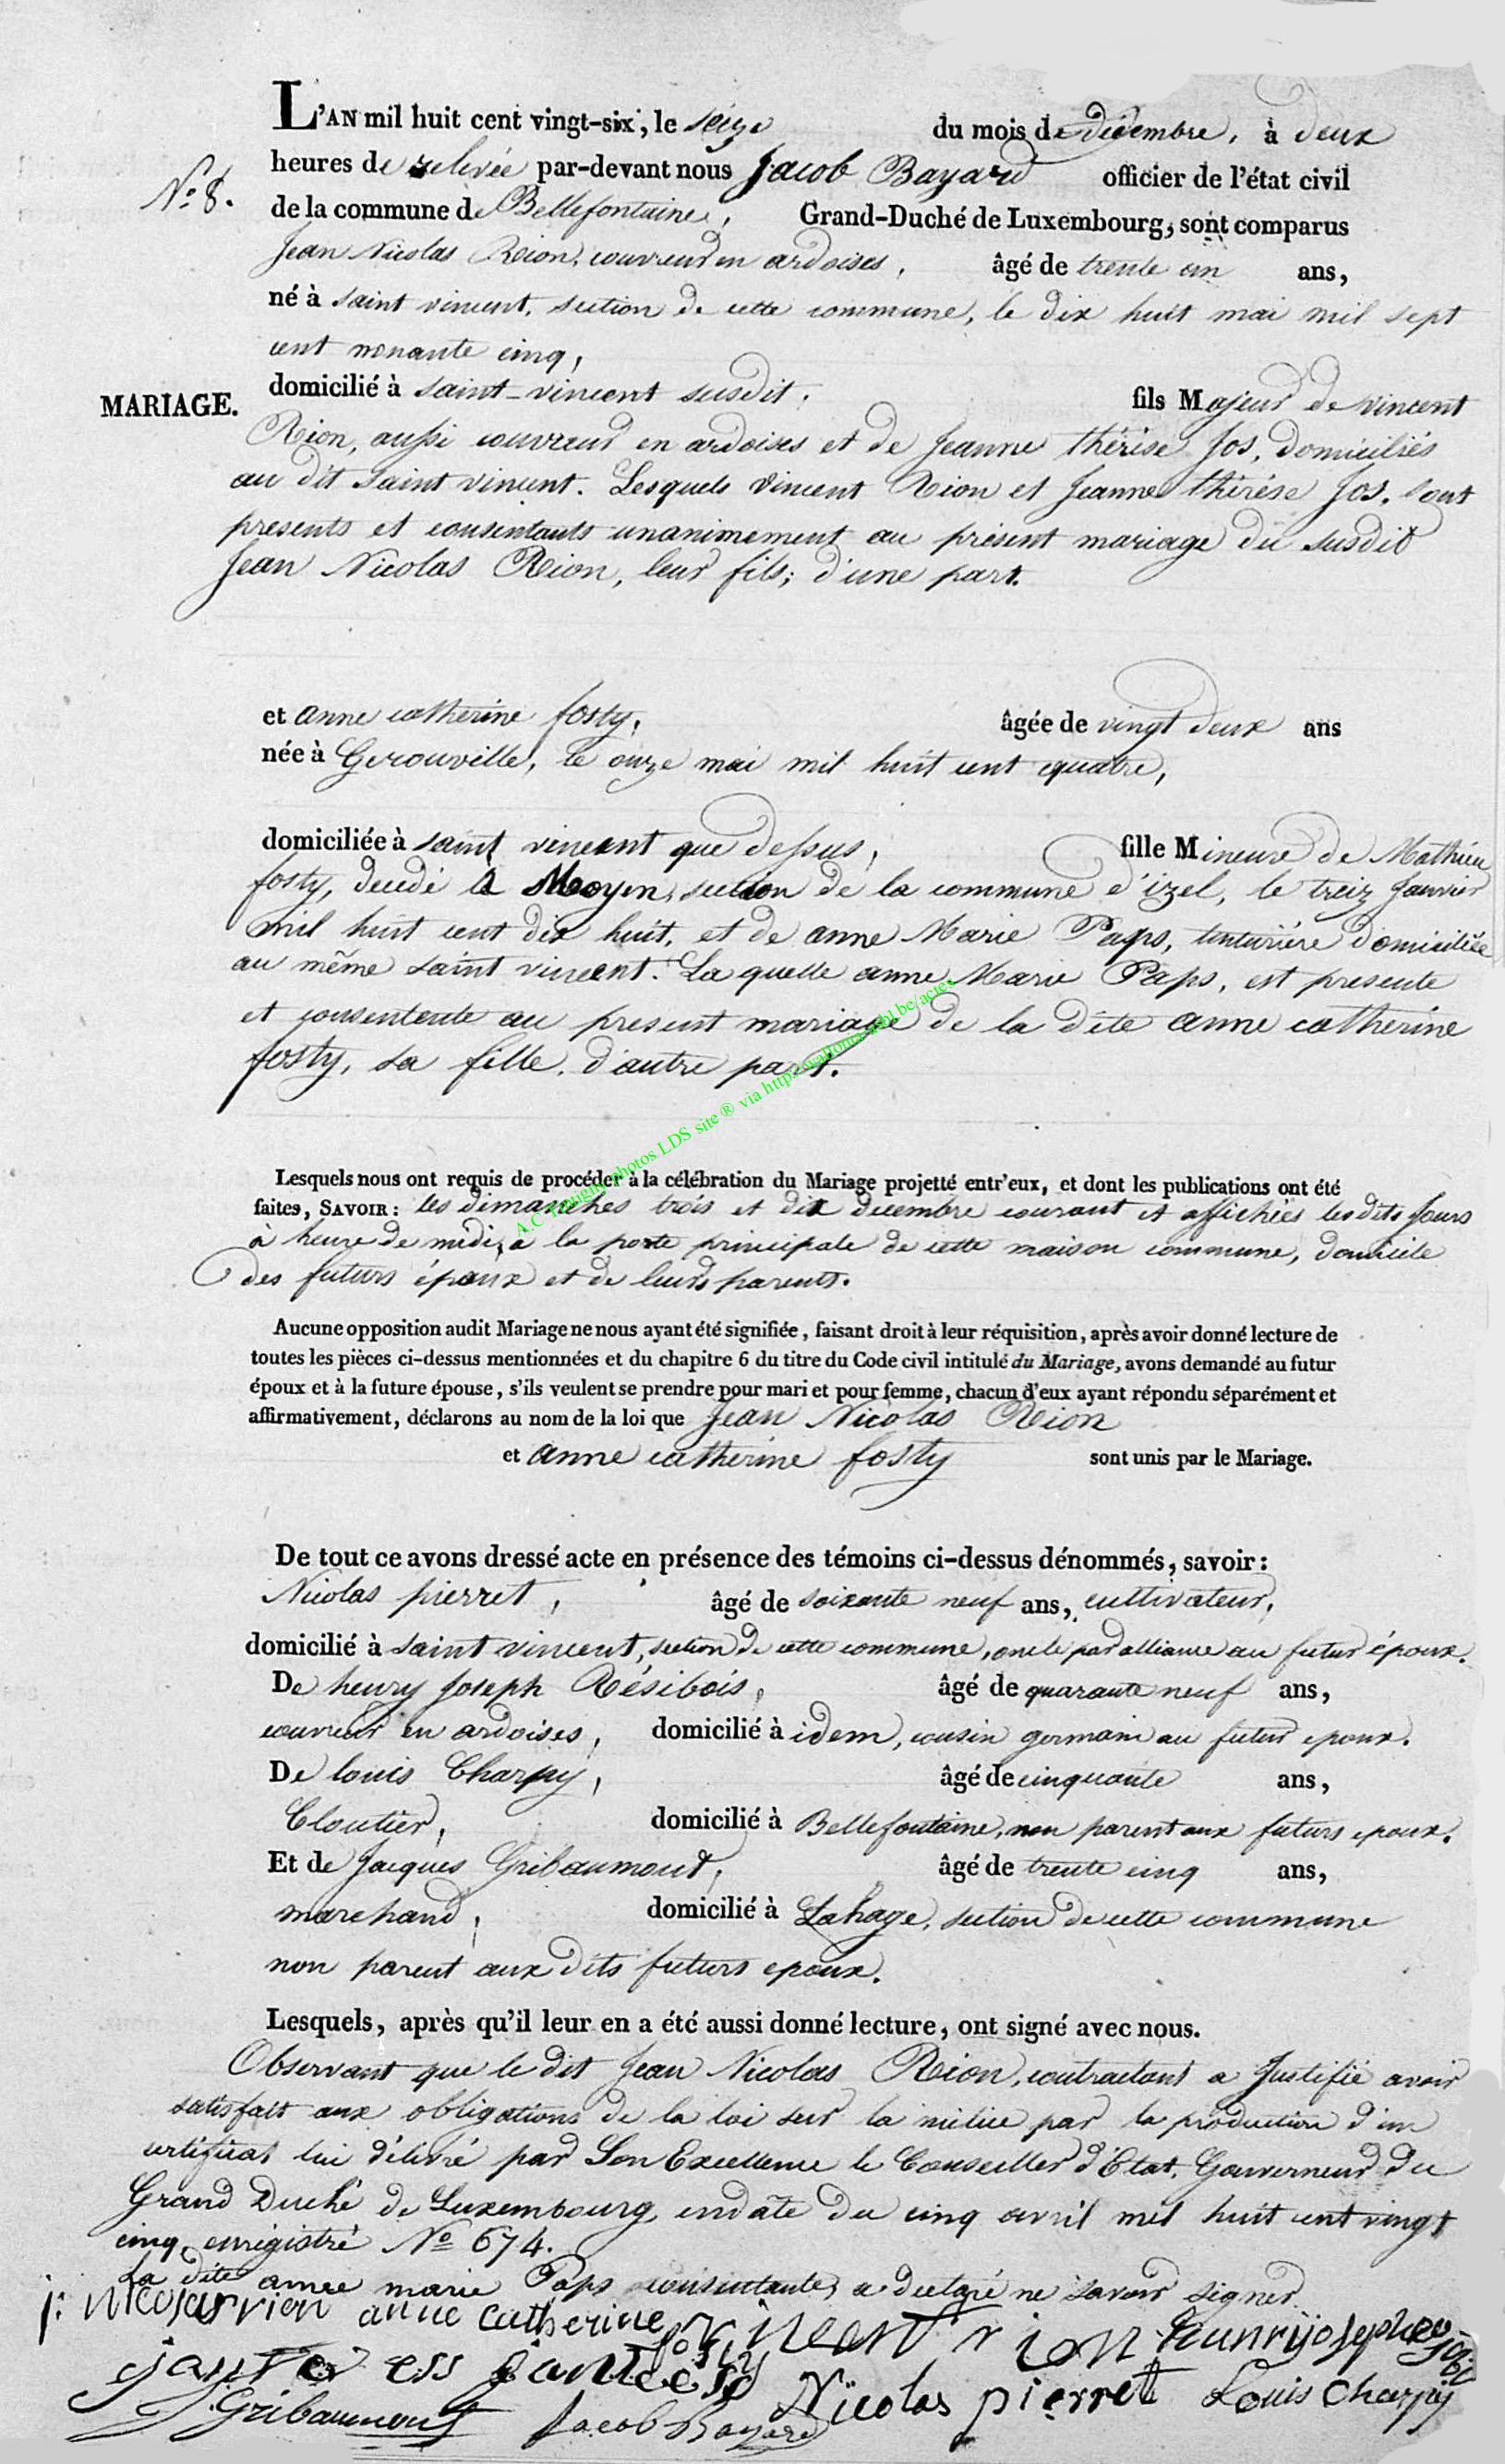 L'AN mil huit cent vingt-six, le seize du mois de décembre, à deux
heures de relevée par-devant nous Jacob Bayard officier de l'état civil
N.o 8.
de la commune de Bellefontaine, Grand-Duché de Luxembourg, sont comparus
Jean Nicolas Rion, couvreur en ardoises, âgé de trente un ans,
né à saint vincent, section de cette commune, le dix huit mai mil sept
cent nonante cinq,
MARIAGE.
domicilié à saint-vincent susdit. fils Majeur de vincent
Rion, aussi couvreur en ardoises et de Jeanne thérèse Jos, domiciliés
au dit saint vincent. Lesquels vincent Rion et Jeanne thérèse Jos, sont
presents et consentants unanimement au présent mariage du susdit
Jean Nicolas Rion, leur fils; d'une part.
et anne catherine fosty, âgée de vingt deux ans
née à Gerouville, le onze mai mil huit cent quatre,
domiciliée à saint vincent que dessus, fille Mineure de Mathieu
fosty, decedé à Moyen, section de la commune d'izel, le treiz Janvier
mil huit cent dix huit, et de anne Marie Paps, tinturière domiciliée
au même saint vincent. La quelle anne Marie Paps, est presente
et consentente au present mariage de la dite anne catherine
fosty, sa fille, d'autre part.
Lesquels nous ont requis de procéder à la célébration du Mariage projetté entr'eux, et dont les publications ont été
faites, SAVOIR: les dimanches trois et dix decembre courant et affichées les dits Jours
à heure de midi, à la porte principale de cette maison commune, domicile
des futurs épaux et de leurs parents.
Aucune opposition audit Mariage ne nous ayant été signifiée, faisant droit à leur réquisition, après avoir donné lecture de
toutes les pièces ci-dessus mentionnées et du chapitre 6 du titre du Code civil intitulé du Mariage, avons demandé au futur
époux et à la future épouse, s'ils veulent se prendre pour mari et pour femme, chacun d'eux ayant répondu séparément et
affirmativement, déclarons au nom de la loi que Jean Nicolas Rion
et anne catherine fosty sont unis par le Mariage.
De tout ce avons dressé acte en présence des témoins ci-dessus dénommés, savoir:
Nicolas pierret, âgé de soixante neuf ans, cultivateur,
domicilié à saint vincent, section de cette commune, oncle par alliance au futur époux.
De henry Joseph Résibois, âgé de quarante neuf ans,
couvreur en ardoises, domicilié à idem, cousin germain au futur epoux.
De louis Charpy, âgé de cinquante ans,
Cloutier, domicilié à Bellefontaine, non parent aux futurs epoux.
Et de Jacques Gribaumont, âgé de trente cinq ans,
marchand, domicilié à Lahage, section de cette commune
non parent aux dits futurs epoux.
Lesquels, après qu'il leur en a été aussi donné lecture, ont signé avec nous.
Observant que le dit Jean Nicolas Rion, contractant a Justifié avoir
satisfait aux obligations de la loi sur la milice par la production d'un
certificat lui délivré par Son Excellence le Conseiller d'Etat, Gouverneur du
Grand Duché de Luxembourg, en date du cinq avril mil huit cent vingt
cinq, enrégistré No 674.
La dite anne marie Paps consentante, a declaré ne savoir signer.
j: nicolas rion anne catherine fosty vincent rion
Nicolas pierret Louis Charpy
J. Gribaumont Jacob Bayard